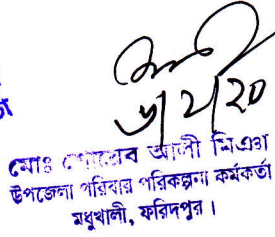 ৬/২/২০
মোঃ শোয়েব আলী মিঞা
উপজেলা পরিবার পরিকল্পনা কর্মকর্তা
মধুখালী, ফরিদপুর।